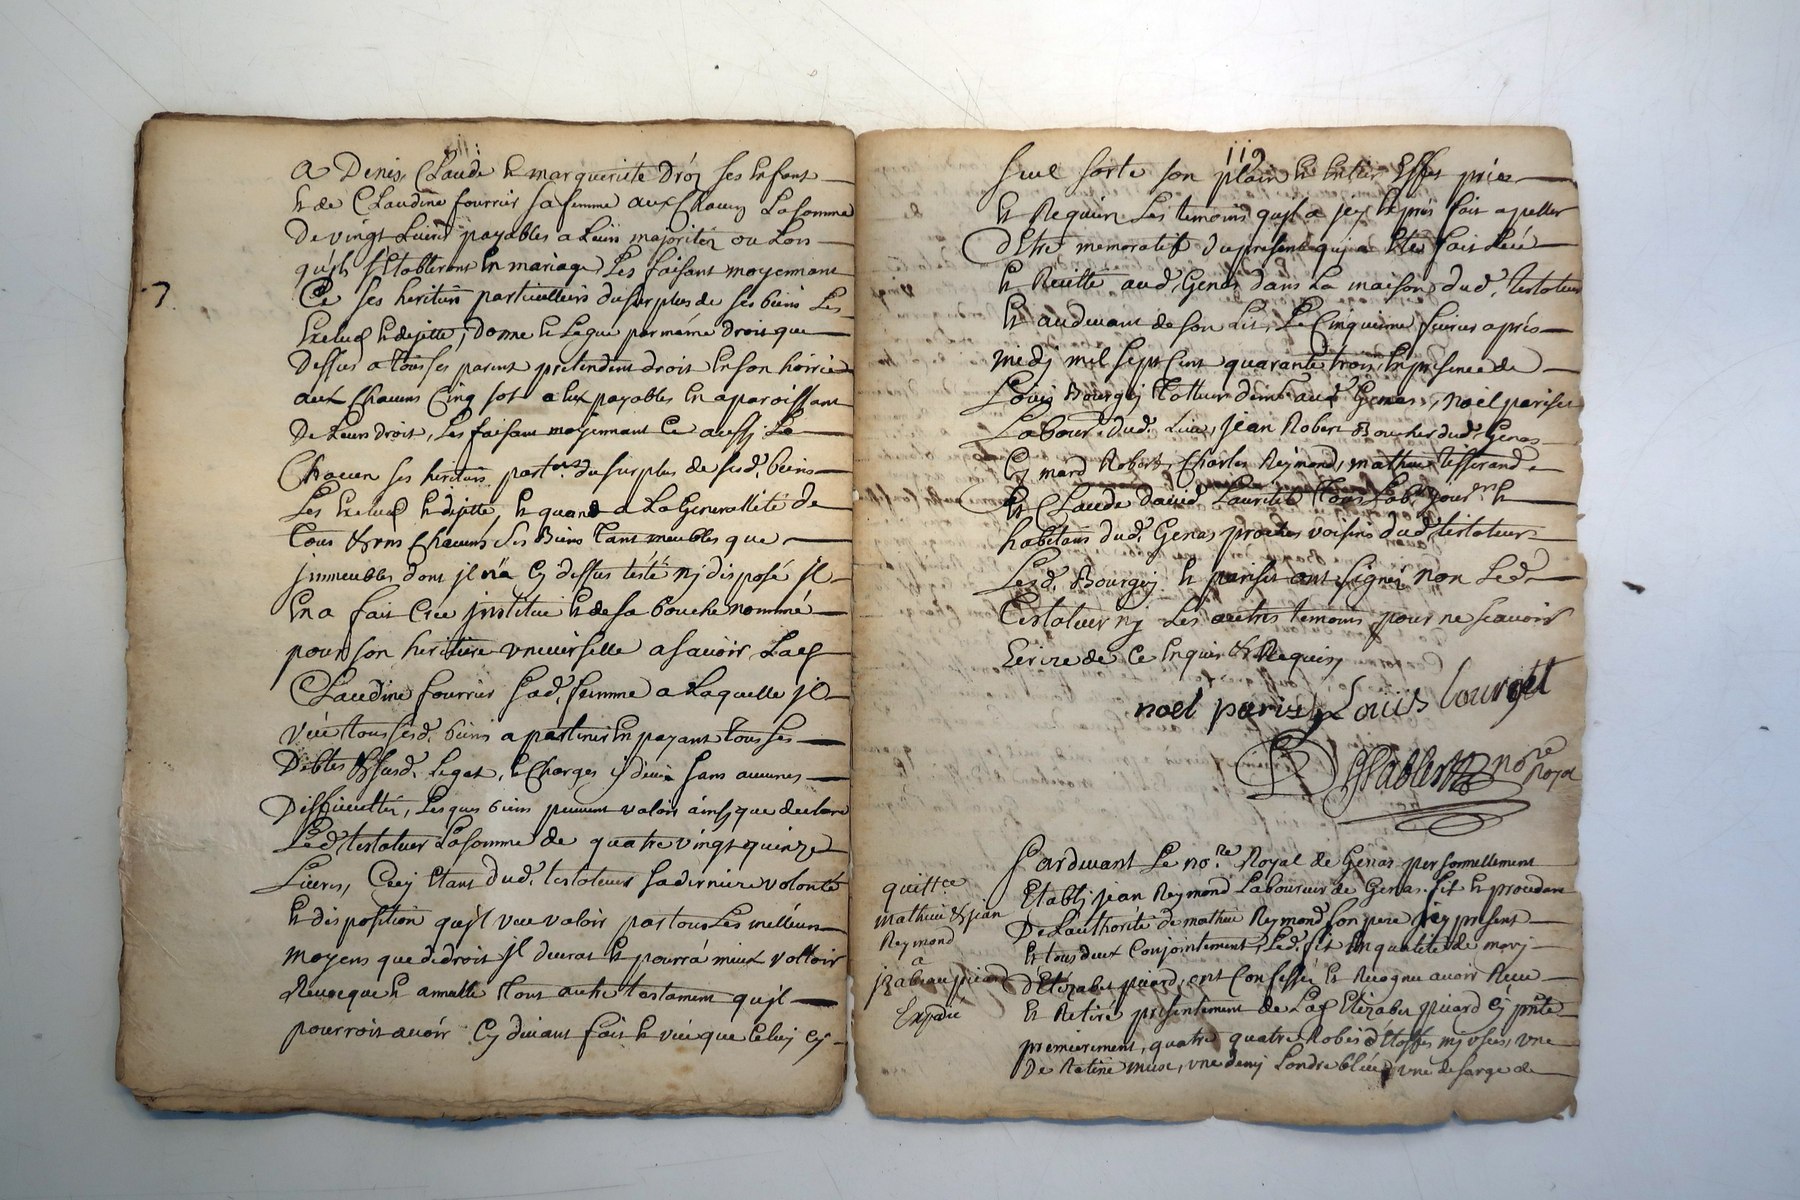 A Denis, Claude & marguerite Droj ses Enfans
& de Claudine fourrier sa femme aux Chacun La somme
De vingt Livres payables a Leurs majorites ou Lors
qu'jls s'Etablerons En mariage Les faisant moyennant
Ce ses heritiers particulliers du surplus de ses biens Les
Exclud & dejette, donne & Legue par même droit que
Dessus a tous ses parens pretendent droit En son hoirie
aux Chacuns Cinq sols a Eux payables En aparoissant
De Leurs droit, Les faisant moyennant Ce aussj Le
Chacun ses heritiers part.ers du surplus de sesd. biens
Les Exclud & dejette, & quand a La Generallité de
Tous & uns Chacuns Ses Biens Tant meubles que
jmmeubles dont jl n'a Cj dessus testé nj disposé jl
En a fait Crée jnstitué & de sa bouche nommé
pour son heritiere vniverselle a savoir Lad.
Claudine fourrier sad. femme a Laquelle jl
veut tous sesd. biens apartenir En payant tous ses
Debtes & susd. Legat, & Charges sans aucunes
Difficultés, Lesques biens peuvent valoir ainsj que declare
Led. testateur La somme de quatre vingt quinze
Livres, Cecy Etant dud. testateur sa derniere volonté
& disposition qu'jl veut valoir par tous Les meilleurs
moyens que de droit jl devrat & pourrá mieux valloir
Revoque & annulle Tous autre testament qu'jl
pourroit avoir Cy divant fait & veut que Celuy Cy
7.
119
seul sorte son plain & Entier Effet priez
& Requier Les temoins qu'jl a jcy Expres fait apeller
D'Etre memoratif du present qui a Eté fait Leu
& Recitté aud. Genas dans La maison dud. testateur
& au devant de son Lit, Le Cinquieme fevrier aprés
midj mil sept Cent quarante trois, En presence de
Louis Bourgej aud. Genas, noel pariset
Labour. dud. Lieu, Jean Robert Boucher dud. Genas
Robert, Charles Reymond, mathieu tisserand
& Claude david Tous Lab.rs & jour.rs &
habitans dud. Genas proches voisins dud. testateur
Lesd. Bourgej & pariset ont signé non Led.
Testateur nj Les autres temoins pour ne scavoir
Ecrire de Ce Enquis & Requis
noel pariset Louis bourget
Sablon no.re Roya
quitt.ce
mathieu & jean
Reymond
a
jzabeau picard
Expedié
Pardevant Le no.re Royal de Genas personnellement
Etablj jean Reymond Laboureur de Genas fit & procedant
De Lauthorité de mathieu Reymond son pere jcy present
& tous deux Conjointement, Led. fit En qualité de mary
d'Elizabet picard, ont Confessé & Recognu avoir Receu
& Retiré presentement de Lad. Elizabet picard Cj p.nte
premierement, quatre quatre Robes d'Etoffes mj vsées, vne
De Ratine muse, vne demy Londre bleu, vne de sarge de